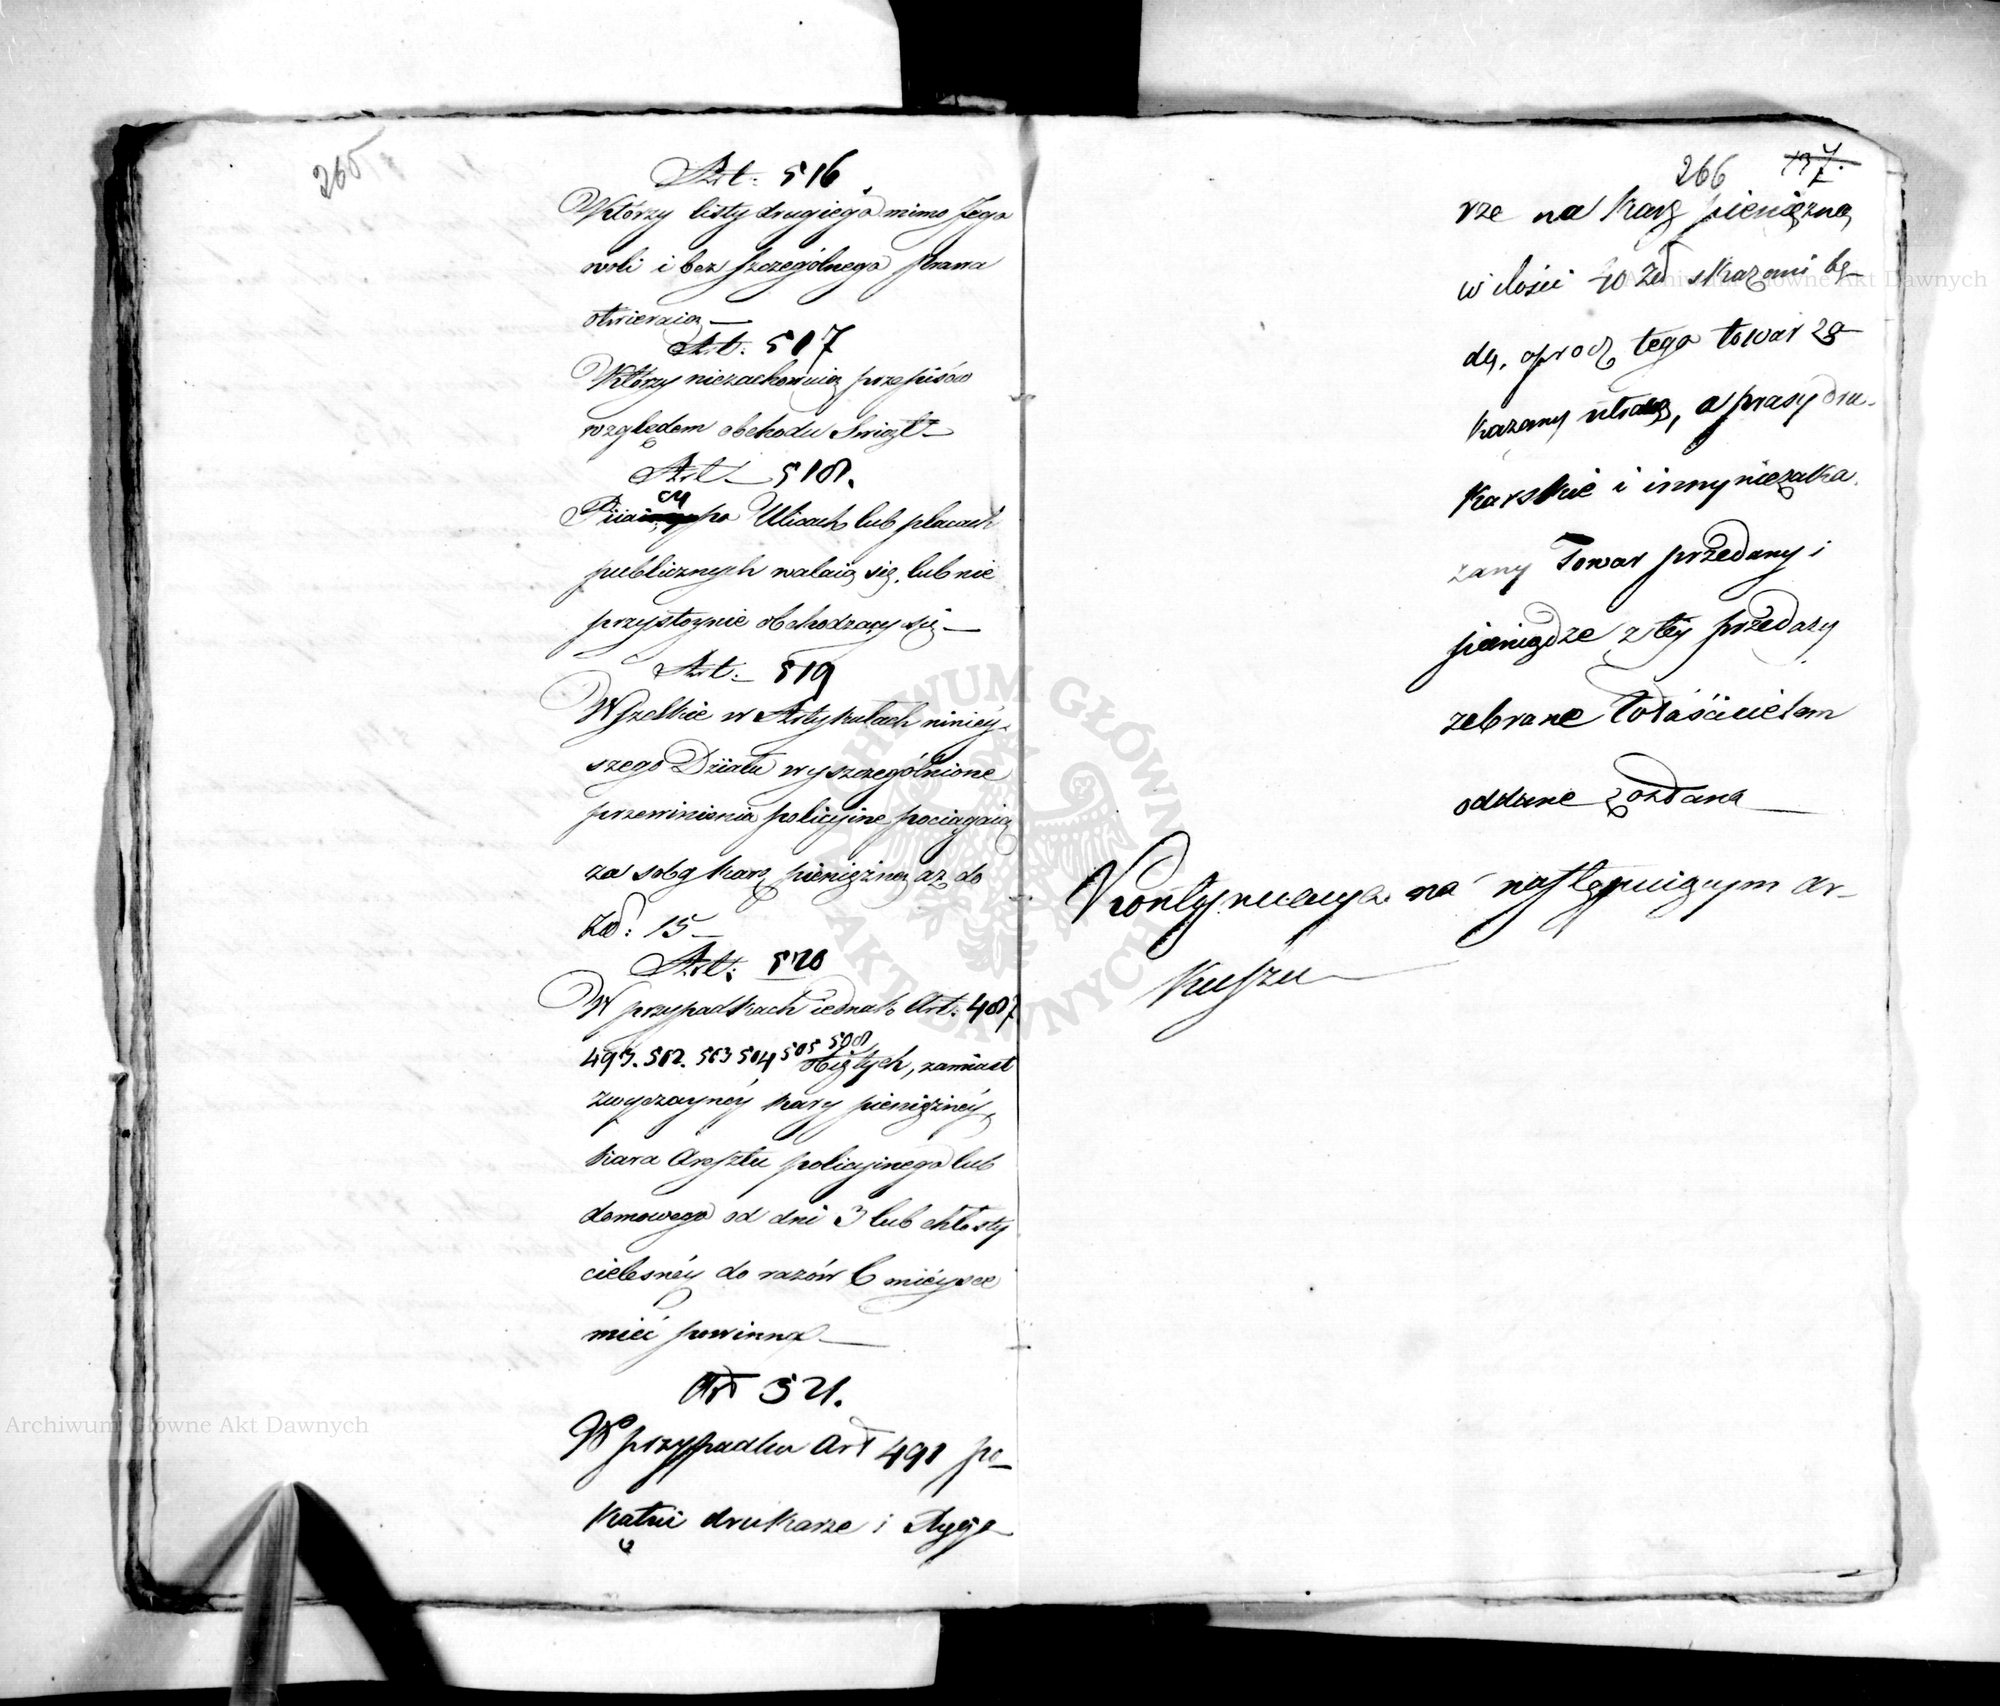 265
Art: 516.
Którzy listy drugiego mimo Jego
woli i bez szczególnego prawa
otwieraią —
Art: 517
Którzy niezachowuią przepisów
względem obchodu Swiąt —
Art: 518.
Piiacy po Ulicach lub placach
publicznych walaią się, lub nie
przystoynie obchodzący się —
Art: 519
Wszelkie w Artykułach ninieÿ-
szego Działu wyszczególnione
przewinienia policyine pociągaią
za sobą karę pieniężną aż do
Zł: 15 —
Art: 520
W przypadkach iednak Art: 487
493. 502. 503 504 505 508 obiętych, zamiast
zwyczaynéy kary pieniężnéy,
kara Aresztu policyinego lub
domowego od dni 3 lub chłosty
cielesnéy do razów 6 mieysce
mieć powinna —
Art 521.
W przypadku Art 491 po-
kątni drukarze i
266 137.
rze na karę pieniężną
w ilości Zł skazani bę-
dą, oprocz tego towar za-
kazany utracą, a prasy dru-
karskie i inny niezaka-
zany Towar przedany i
pieniądze z téy przedaży
zebrane właścicielom
oddane zostaną —
Kontynuacya na następuiącym ar-
kuszu —
Archiwum Główne Akt Dawnych
Archiwum Główne Akt Dawnych
ARCHIWUM GŁÓWNE AKT DAWNYCH